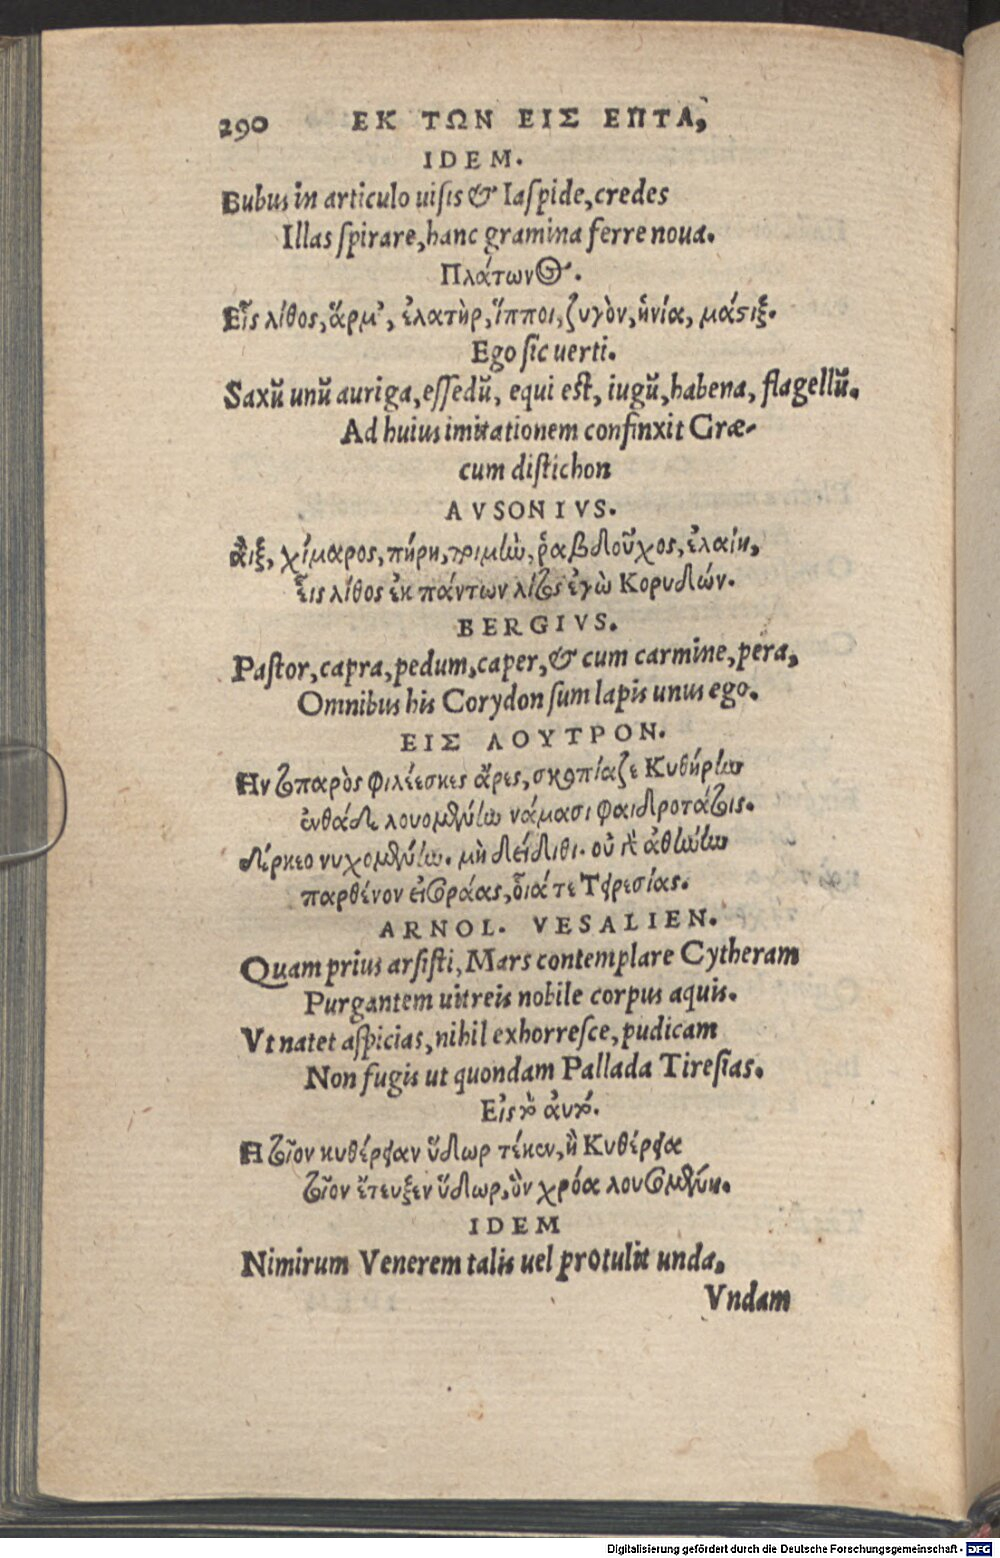 290 ΕΚ ΤΩΝ ΕΙΣ ΕΠΤΑ,
IDEM.
Bubus in articulo uisis & Iaspide, credes
Illas spirare, hanc gramina ferre noua.
Πλάτωνος.
Εἷς λίθος, ἅρμ', ἐλατὴρ, ἵπποι, ζυγὸν, ἡνία, μάστιξ.
Ego sic uerti.
Saxũ unũ auriga, essedũ, equi est, iugũ, habena, flagellũ.
Ad huius imitationem confinxit Græ-
cum distichon
AVSONIVS.
ἂιξ, χίμαρος, πήρη, ποιμὼ, ῥαβδοῦχος, ἐλαίη,
εἷς λίθος ἐκ πάντων λιτὸς ἐγὼ Κορυδών.
BERGIVS.
Pastor, capra, pedum, caper, & cum carmine, pera,
Omnibus his Corydon sum lapis unus ego.
ΕΙΣ ΛΟΥΤΡΟΝ.
Ην τοπαρὸς φιλέεσκες ἄρες, σκοπίαζε Κυθήρὼ
ἐνθάδε λουομένὼ νάμασι φαιδροτάτοις.
δέρκεο νυχομένὼ. μὴ δείδιθι. οὐ γὸ ἀθὼὼ
παρθένον εἰσοράας, οἷά τε Τειρεσίας.
ARNOL. VESALIEN.
Quam prius arsisti, Mars contemplare Cytheram
Purgantem uitreis nobile corpus aquis.
Vt natet aspicias, nihil exhorresce, pudicam
Non fugis ut quondam Pallada Tiresias.
Εἰς τὸ ἀυτό.
Η τοῖον κυθέρειαν ὕδωρ τέκεν, ἢ Κυθέρεια
τοῖον ἔτευξεν ὕδωρ, ὃν χρόα λουσαμένη.
IDEM
Nimirum Venerem talis uel protulit unda,
Vndam
Digitalisierung gefördert durch die Deutsche Forschungsgemeinschaft - DFG